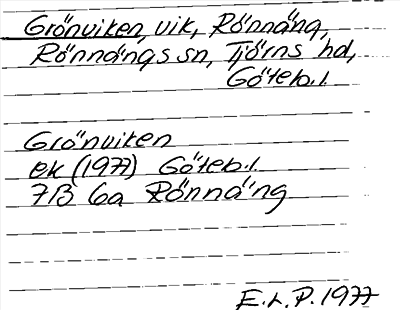 Grönviken, vik, Rönnäng,
Rönnängs sn, Tjörns hd,
Göteb.l.
Grönviken
ek (1977) Göteb.l.
7B 6a Rönnäng
E.L.P. 1977